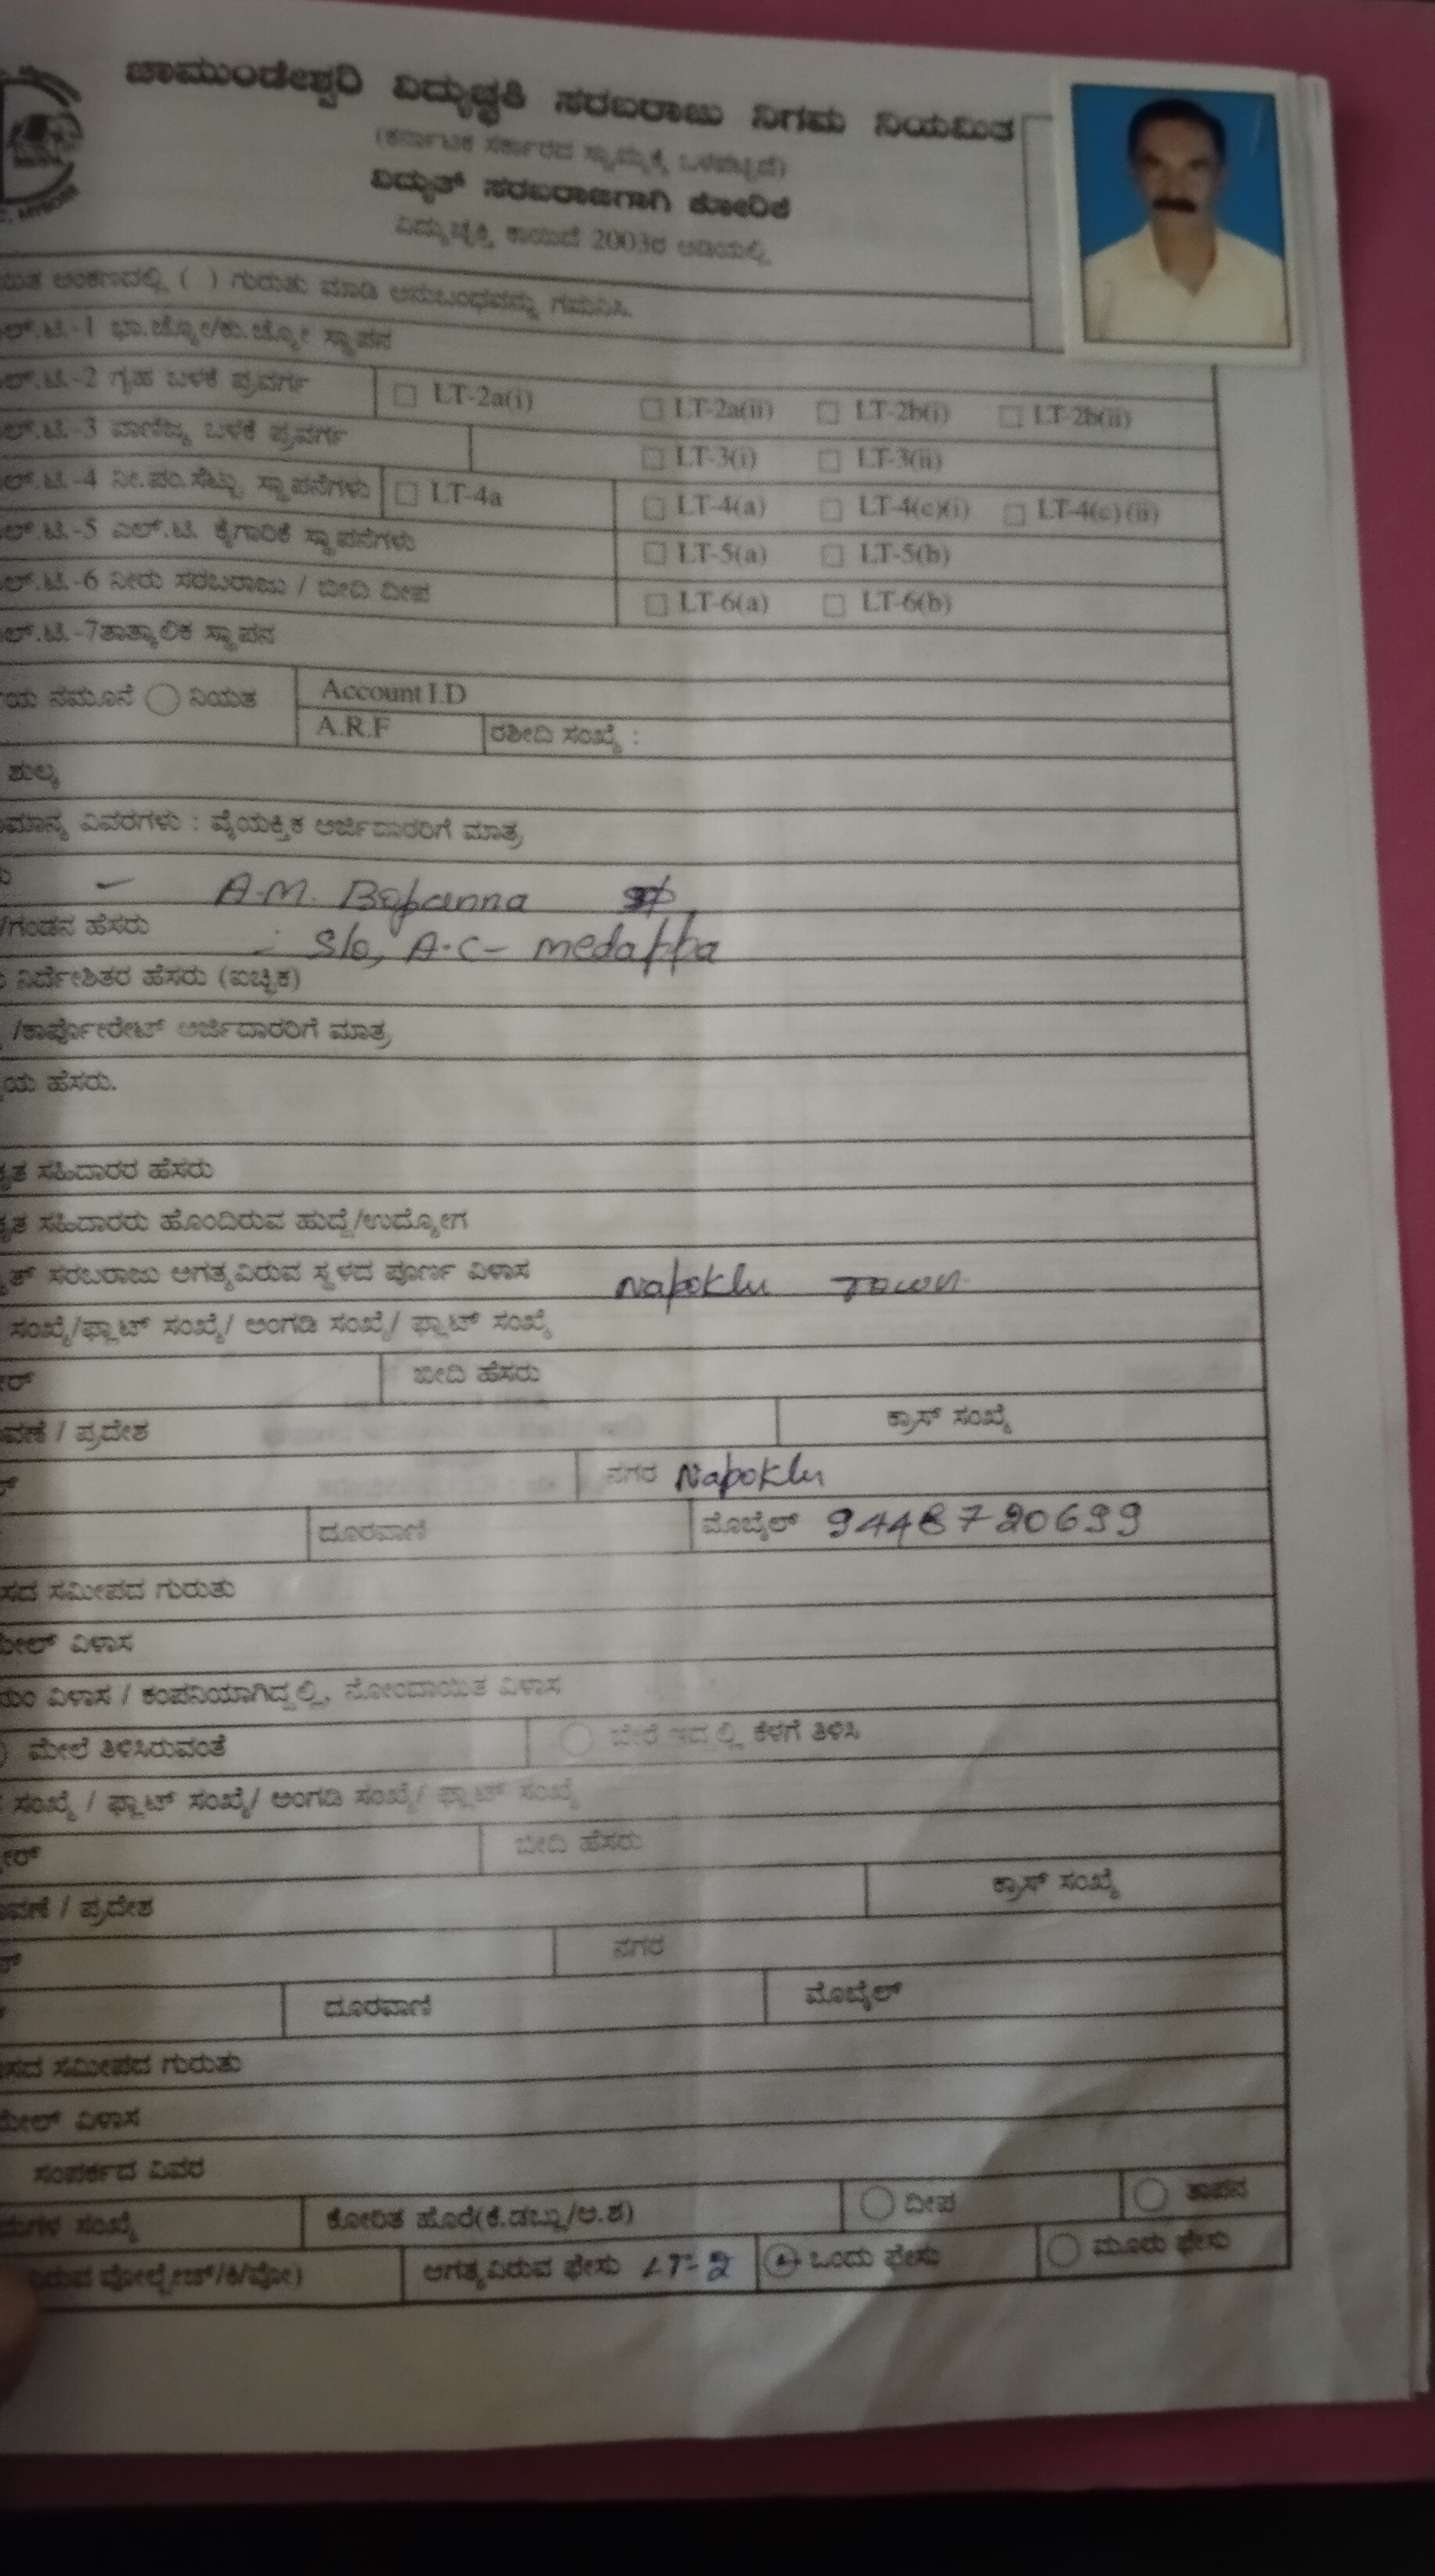 ಚಾಮುಂಡೇಶ್ವರಿ ವಿದ್ಯುಚ್ಛಕ್ತಿ ಸರಬರಾಜು ನಿಗಮ ನಿಯಮಿತ
(ಕರ್ನಾಟಕ ಸರ್ಕಾರದ ಸ್ವಾಮ್ಯಕ್ಕೆ ಒಳಪಟ್ಟಿದೆ)
ವಿದ್ಯುತ್ ಸರಬರಾಜಿಗಾಗಿ ಕೋರಿಕೆ
ವಿದ್ಯುಚ್ಛಕ್ತಿ ಕಾಯಿದೆ 2003ರ ಅಡಿಯಲ್ಲಿ
ಅಂಕಣದಲ್ಲಿ ( ) ಗುರುತು ಮಾಡಿ ಅನುಬಂಧವನ್ನು ಗಮನಿಸಿ.
ಲ್.ಟಿ.-1 ಭಾ.ಜ್ಯೋ/ಕು.ಜ್ಯೋ ಸ್ಥಾಪನ
ಲ್.ಟಿ.-2 ಗೃಹ ಬಳಕೆ ಪ್ರವರ್ಗ LT-2a(i) LT-2a(ii) LT-2b(i) LT-2b(ii)
ಲ್.ಟಿ.-3 ವಾಣಿಜ್ಯ ಬಳಕೆ ಪ್ರವರ್ಗ LT-3(i) LT-3(ii)
ಲ್.ಟಿ.-4 ನೀ.ಪಂ.ಸೆಟ್ಟು ಸ್ಥಾಪನೆಗಳು LT-4a LT-4(a) LT-4(c)(i) LT-4(c)(ii)
ಲ್.ಟಿ.-5 ಎಲ್.ಟಿ. ಕೈಗಾರಿಕೆ ಸ್ಥಾಪನೆಗಳು LT-5(a) LT-5(b)
ಲ್.ಟಿ.-6 ನೀರು ಸರಬರಾಜು / ಬೀದಿ ದೀಪ LT-6(a) LT-6(b)
ಲ್.ಟಿ.-7ತಾತ್ಕಾಲಿಕ ಸ್ಥಾಪನ
ನಮೂನೆ ನಿಯತ Account I.D
A.R.F ರಶೀದಿ ಸಂಖ್ಯೆ :
ಶುಲ್ಕ
ವಿವರಗಳು : ವೈಯಕ್ತಿಕ ಅರ್ಜಿದಾರರಿಗೆ ಮಾತ್ರ
A.M. Bopanna
/ಗಂಡನ ಹೆಸರು S/o, A.C- medappa
ನಿರ್ದೇಶಿತರ ಹೆಸರು (ಐಚ್ಛಿಕ)
/ಕಾರ್ಪೋರೇಟ್ ಅರ್ಜಿದಾರರಿಗೆ ಮಾತ್ರ
ಯ ಹೆಸರು.
ಕೃತ ಸಹಿದಾರರ ಹೆಸರು
ಕೃತ ಸಹಿದಾರರು ಹೊಂದಿರುವ ಹುದ್ದೆ/ಉದ್ಯೋಗ
ತ್ ಸರಬರಾಜು ಅಗತ್ಯವಿರುವ ಸ್ಥಳದ ಪೂರ್ಣ ವಿಳಾಸ Napoklu Town
ಸಂಖ್ಯೆ/ಫ್ಲಾಟ್ ಸಂಖ್ಯೆ/ ಅಂಗಡಿ ಸಂಖ್ಯೆ/ ಫ್ಲಾಟ್ ಸಂಖ್ಯೆ
ಬೀದಿ ಹೆಸರು
ವಣೆ / ಪ್ರದೇಶ ಕ್ರಾಸ್ ಸಂಖ್ಯೆ
ನಗರ Napoklu
ದೂರವಾಣಿ ಮೊಬೈಲ್ 9448720699
ಸದ ಸಮೀಪದ ಗುರುತು
ಮೇಲ್ ವಿಳಾಸ
ವಿಳಾಸ / ಕಂಪನಿಯಾಗಿದ್ದಲ್ಲಿ, ನೋಂದಾಯಿತ ವಿಳಾಸ
ಮೇಲೆ ತಿಳಿಸಿರುವಂತೆ ಬೇರೆ ಇದ್ದಲ್ಲಿ ಕೆಳಗೆ ತಿಳಿಸಿ
ಸಂಖ್ಯೆ / ಫ್ಲಾಟ್ ಸಂಖ್ಯೆ/ ಅಂಗಡಿ ಸಂಖ್ಯೆ/ ಫ್ಲಾಟ್ ಸಂಖ್ಯೆ
ಬೀದಿ ಹೆಸರು
ವಣೆ / ಪ್ರದೇಶ ಕ್ರಾಸ್ ಸಂಖ್ಯೆ
ನಗರ
ದೂರವಾಣಿ ಮೊಬೈಲ್
ಸದ ಸಮೀಪದ ಗುರುತು
ಮೇಲ್ ವಿಳಾಸ
ಸಂಪರ್ಕದ ವಿವರ
ಸಂಖ್ಯೆ ಕೋರಿತ ಹೊರೆ(ಕೆ.ಡಬ್ಲ್ಯು/ಅ.ಶ) ದೀಪ ತಾಪನ
ವೋಲ್ಟೇಜ್/ಕಿ/ವೋ) ಅಗತ್ಯವಿರುವ ಫೇಸು LT-2 ಒಂದು ಫೇಸು ಮೂರು ಫೇಸು